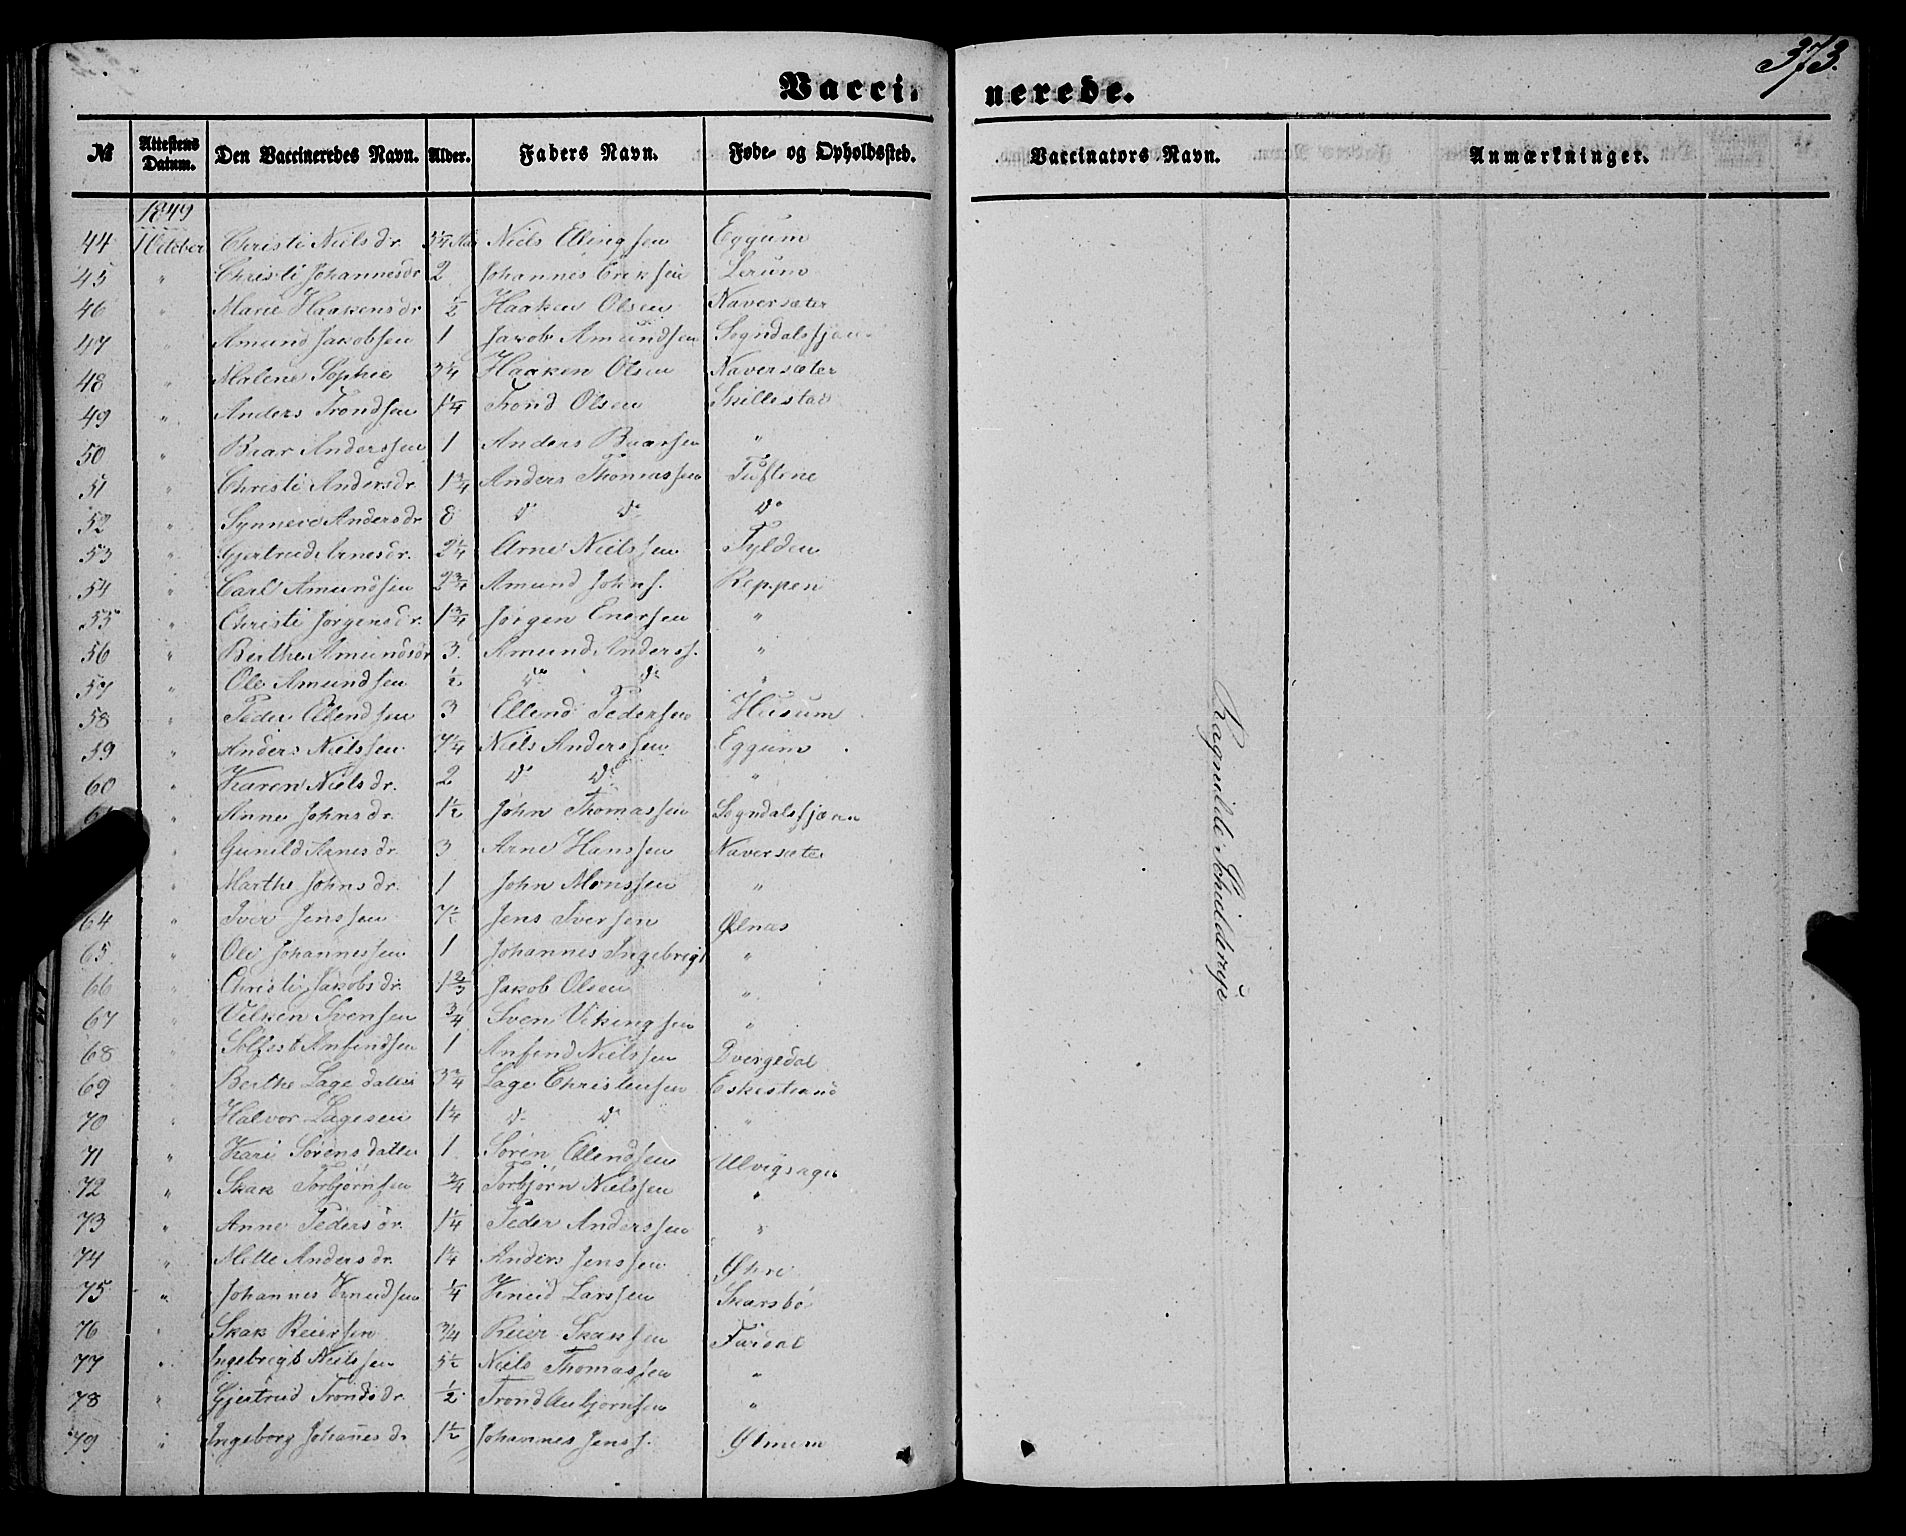 373.
Vaccinerede.
№ Attestens Datum. Den Vaccineredes Navn. Alder. Faders Navn. Føde- og Opholdssted. Vaccinators Navn. Anmærkninger.
1849
44 1 October Christi Nielsdr. 5¼ Niels Ellingsen Eggum
45 " Christi Johannesdr 2 Johannes Eriksen Lerum
46 " Marie Haakensdr ½ Haaken Olsen Naversæter
47 " Amund Jakobsen 1 Jakob Amundsen
48 " Malene Sophie 3¼ Haaken Olsen Naversæter
49 " Anders Trondsen 1¼ Trond Olsen Skillestad
50 " Anderssen 1 Anders "
51 " Christi Andersdr 1¾ Anders Thomassen Tuftene
52 " Synneve Andersdr 8 do do do
53 " Gjertrud Arnesdr. 2¼ Arne Nielssen Fylden
54 " Carl Amundsen 2¾ Amund Johns. Reppen
55 " Christi Jörgensdr. 1¾ Jörgen Enersen "
56 " Berthe Amundsdr 3. Amund Anders. "
57 " Ole Amundsen ½ do do "
58 " Peder Ellendsen 3 Ellend Pedersen Husum
59 " Anders Nielssen 7¼ Niels Anderssen Eggum
60 " Karen Nielsdr. 2 do do "
" Anne Johnsdr. 1½ John Thomassen Sogndalsfjæren
" Gunild Arnesdr. 3 Arne Hanssen Naversæter
" Marthe Johnsdr. 1 John Monssen "
64 " Iver Jenssen 7½ Jens Iversen Ølnas
65 " Ole Johannessen 1 Johannes Ingebrigt "
66 " Christi Jakobsdr. 1⅔ Jakob Olsen "
67 " Svensen ¾ Sven Vikingsen "
68 " Solfest Anfindsen 1 Anfind Nielssen Dvergedal
69 " Berthe Lagedatter 3¾ Lage Christensen Eskestrand
70 " Halvor Lagesen 1¼ do do "
71 " Kari Sörensdatter 1. Sören Ellendsen
72 " Skak Torbjörnsen ¾ Torbjörn Nielssen "
73 " Anne Pedersdr. 1¼ Peder Anderssen "
74 " Mette Andersdr. 1¼ Anders Jenssen
75 " Johannes Knudsen ¼ Knud Larssen Skarsbö
76 " Skak Reiersen ¾ Reier Skaksen Fardal
77 " Ingebrigt Nielssen 5½ Niels Thomassen "
78 " Gjertrud Trondsdr. ½ Trond Aubjørnsen "
79 " Ingeborg Johanesdr 1½ Johannes Jens. Ølmem
Ragnilde